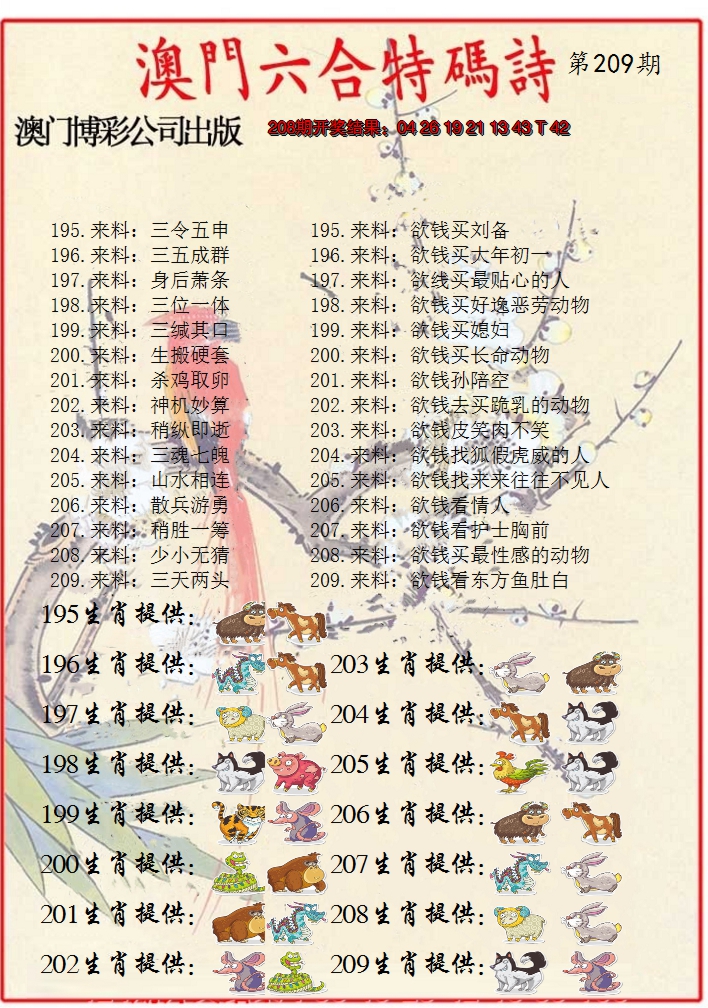 澳門六合特碼詩 第209期
澳门博彩公司出版 208期开奖结果：04 26 19 21 13 43 T 42
195.来料：三令五申 195.来料：欲钱买刘备
196.来料：三五成群 196.来料：欲钱买大年初一
197.来料：身后萧条 197.来料：欲线买最贴心的人
198.来料：三位一体 198.来料：欲钱买好逸恶劳动物
199.来料：三缄其口 199.来料：欲钱买媳妇
200.来料：生搬硬套 200.来料：欲钱买长命动物
201.来料：杀鸡取卵 201.来料：欲钱孙陪空
202.来料：神机妙算 202.来料：欲钱去买跪乳的动物
203.来料：稍纵即逝 203.来料：欲钱皮笑肉不笑
204.来料：三魂七魄 204.来料：欲钱找狐假虎威的人
205.来料：山水相连 205.来料：欲钱找来来往往不见人
206.来料：散兵游勇 206.来料：欲钱看情人
207.来料：稍胜一筹 207.来料：欲钱看护士胸前
208.来料：少小无猜 208.来料：欲钱买最性感的动物
209.来料：三天两头 209.来料：欲钱看东方鱼肚白
195生肖提供：
196生肖提供： 203生肖提供：
197生肖提供： 204生肖提供：
198生肖提供： 205生肖提供：
199生肖提供： 206生肖提供：
200生肖提供： 207生肖提供：
201生肖提供： 208生肖提供：
202生肖提供： 209生肖提供：